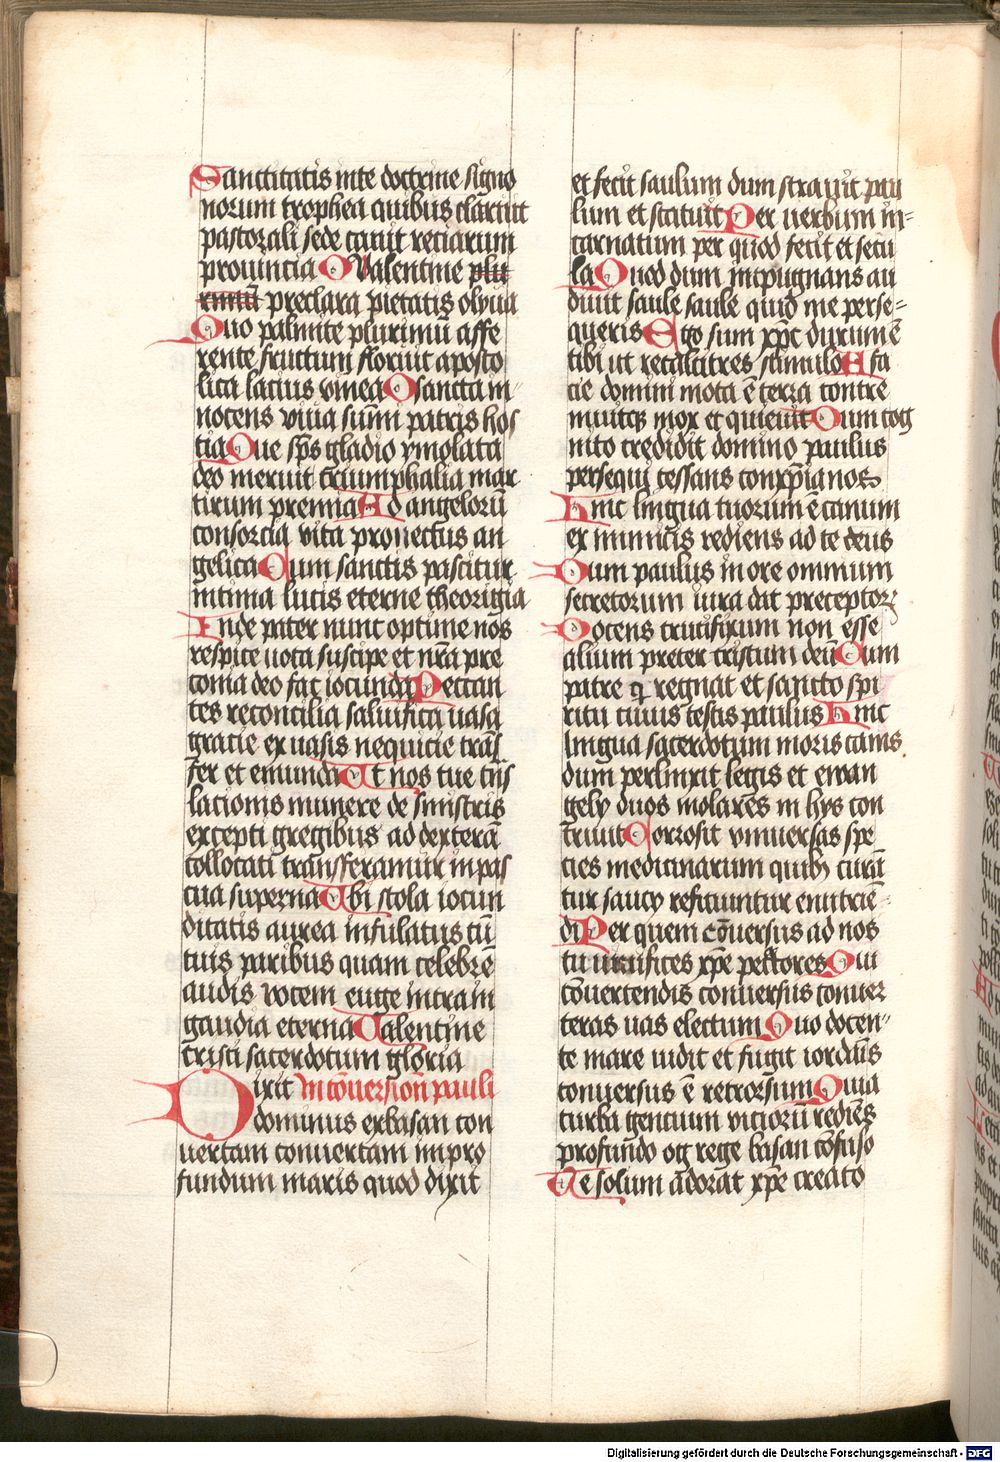 Sanctitatis in te doctrine signo
norum trophea quibus claruit
pastorali sede tenuit retiarum
prouincia O Valentine plu
rimū preclara pietatis olyua
Quo palmite plurimū affe
rente fructum floruit aposto
lica lacius vinea O sancta in
nocens viua sūmi patris hos
tia Que sp̄s gladio ymolata
deo meruit triumphalia mar
tirum premia Ad angelorū
consorcia vita prouectus an
gelica Cum sanctis pascitur
intima lucis eterne theorigia
Inde pater nunc optime nōs
respice uota suscipe et nr̄a pre
conia deo fac iocunda Peccan
tes reconcilia saluifica uasa
gracie ex uasis nequicie trās
fer et emunda Vt nos tue trās
lacionis munere de sinistris
excepti gregibus ad dexterā
collocati transferamur in pas
cua superna Vbi stola iocun
ditatis aurea infulatus cū
tuis paribus quam celebrē
audis vocem euge intra in
gaudia eterna Valentine
cristi sacerdotum gloria
Dixit In cōuersiōn pauli
dominus ex basan con
uertam conuertam in pro
fundum maris quod dixit
et fecit saulum dum strauit pau
lum et statuit Per uerbum in=
carnatum per quod fecit et secu
la Quod dum inpugnans au
diuit saule saule quid me perse=
queris Ego sum xp̄c durum ē
tibi ut recalcitres stimulo A fa
cie domini mota ē terra contre
muitq mox et quieuit Dum cog
nito credidit domino paulus
persequi cessans con xp̄ianos
Hinc lingua tuorum ē canum
ex inimicis rediens ad te deus
Dum paulus in ore omnium
secretorum iura dat preceptorꝝ
Docens crucifixum non esse
alium preter cristum deū Cum
patre q regnat et sancto spi
ritu cuius testis paulus Hinc
lingua sacerdotum moris canis
dum perlinxit legis et ewan
gely duos molares in hys con
triuit Corrosit vniuersas spe
cies medicinarum quibꝫ curā
tur saucy reficiuntur enutriē=
di Per quem cōuersus ad nos
tu uiuifices xp̄e peccatores Qui
cōuertendis conuersus conuer
teras uas electum Quo docen=
te mare uidit et fugit iordānis
conuersus ē retrorsum Quia
turba gencium viciorū rediēs
profundo og rege basan cōfuso
Te solum adorāt xp̄e creato
Digitalisierung gefördert durch die Deutsche Forschungsgemeinschaft - DFG